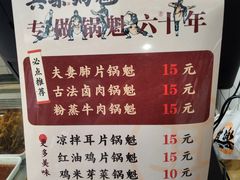 专做锅魁六十年
必点推荐
夫妻肺片锅魁 15元
古法卤肉锅魁 15元
粉蒸牛肉锅魁 15元
更多美味
凉拌耳片锅魁 15元
红油鸡片锅魁 15元
鸡米芽菜锅魁 10元